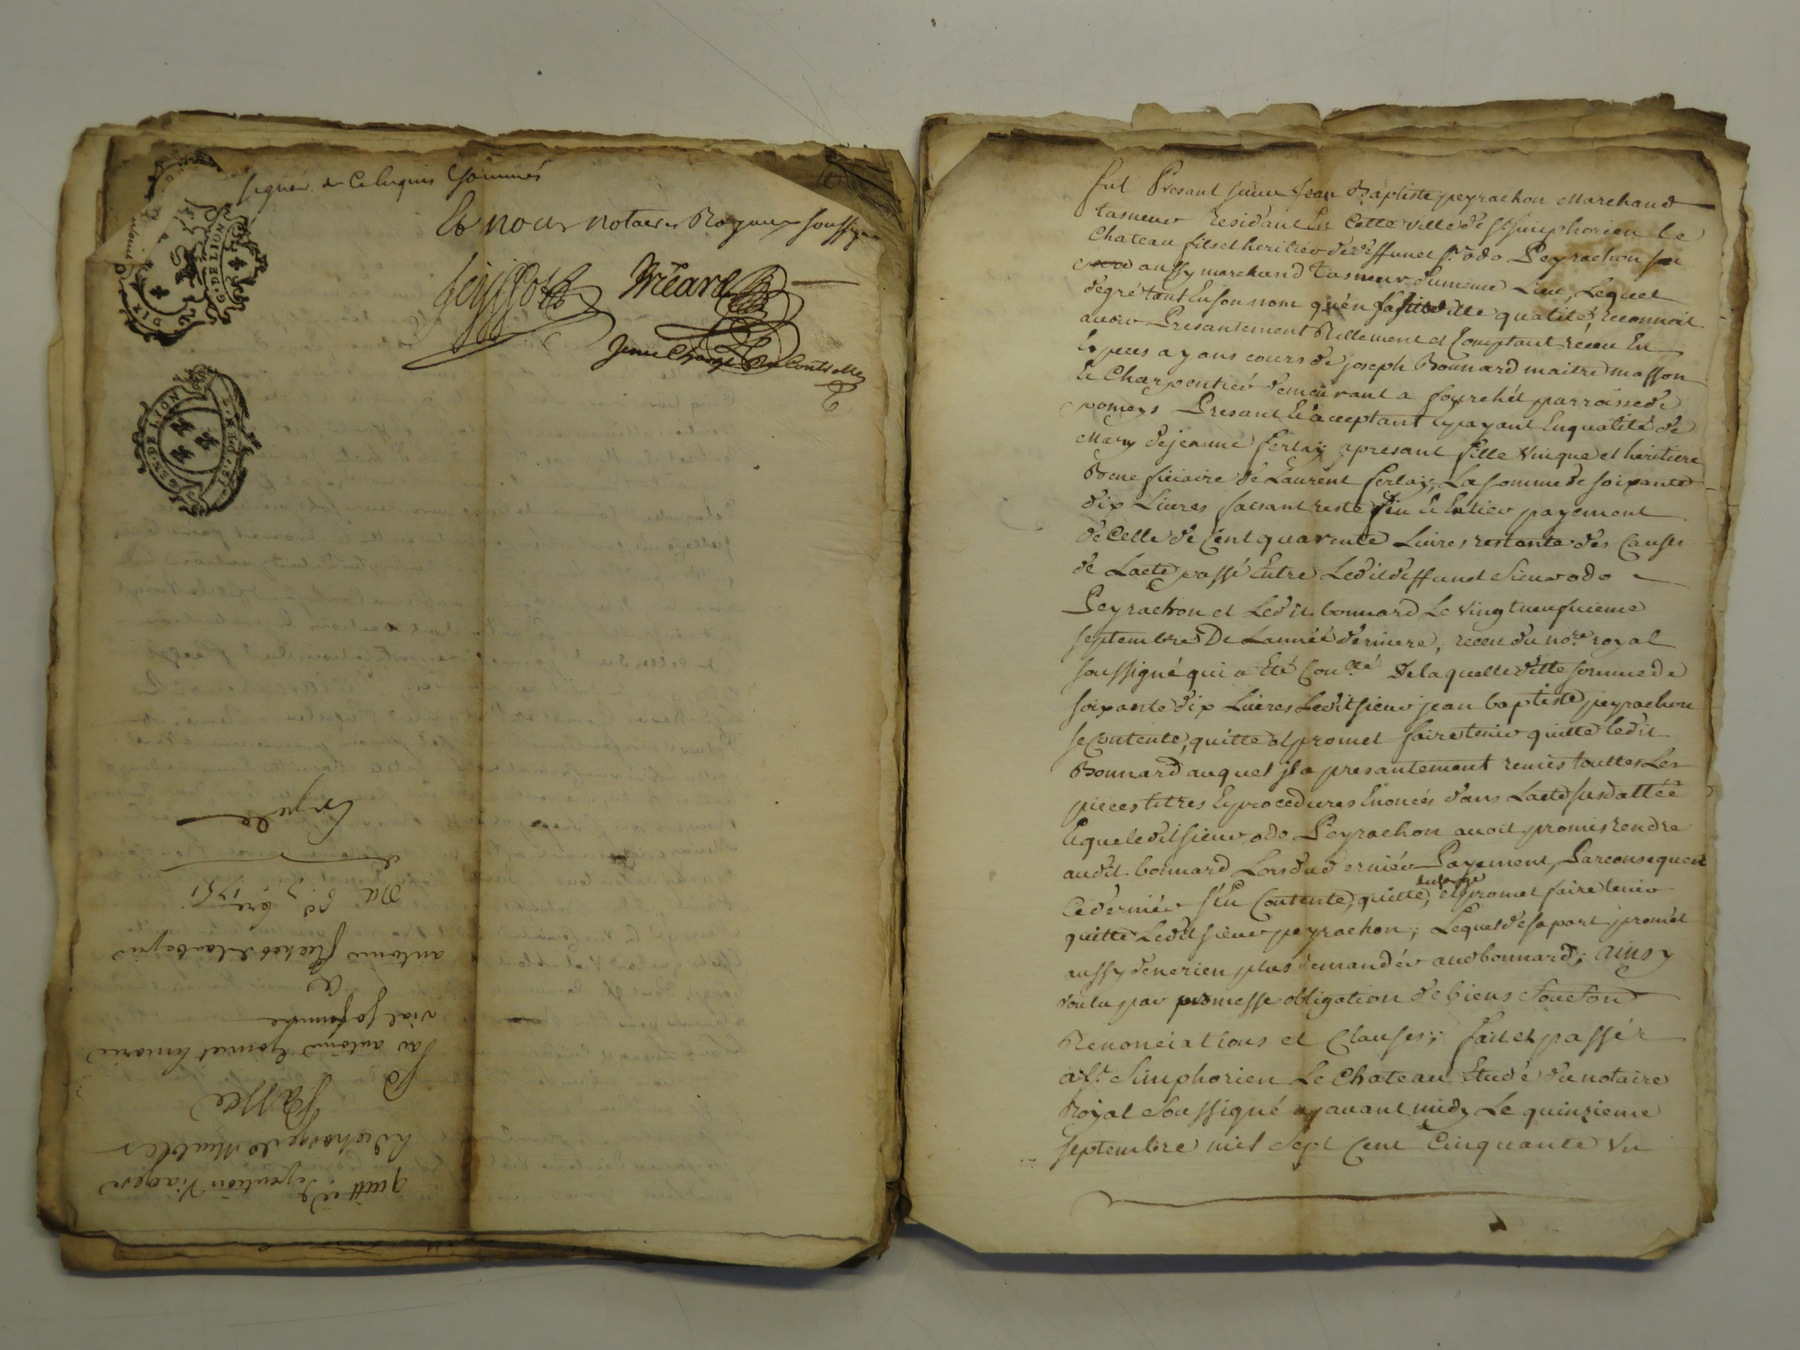 signer de ce enquis & sommés
Et nous notaires Royaux soussignés
G. DE LION
GEN. DE LION
Expédié
Du 8 7bre 1751
a
vial sa femme
Par antoine
Passée
& décharge de Meubles
quittance de pention Viagere
fut Présant sieur Jean Baptiste peyrachon Marchand
tasneur residant En Cette ville de St Simphorien le
Chateau fils et heritier de deffunct Sr odo Peyrachon
aussy marchand tasneur du meme Lieu, Lequel
de gré tant En son nom qu'en saditte qualité, reconnoit
avoir Présantement Réllement et Comptant receu En
Especes ayans cours de joseph Bonnard maitre masson
Et Charpentier demeurant a fourchét parroisse de
pomeys Présant Et acceptant Et payant En qualité de
Mary de jeanne ferlay apresant fille Unique et heritiere
Benneficiaire de Laurent ferlay, La somme de soixante
dix Livres faisant reste fin Et Entier payement
de Celle de Cent quarente Livres restante des Causes
de Lacte passé Entre Ledit deffunct Sieur odo
Peyrachon et Ledit bonnard Le vingt neufvieme
septembre De Lannée derniere, receu du nore royal
soussigné qui a Eté Conllé De laquelle ditte somme de
soixante dix Livres Ledit sieur jean baptiste peyrachon
se Contente, quitte et promet faire tenir quitte ledit
Bonnard auquel jl a presantement remis touttes Les
pieces titres Et procedures Enoncés dans Lacte susdatté
Et que ledit sieur odo Peyrachon avoit promis rendre
audit bonnard Lors du dernier Payement, Par consequent
Ce dernier s'en Contente, quitte, et promet faire tenir
quitte Ledit sieur peyrachon; Lequel de sa part promet
aussy de ne rien plus demander aud bonnard; Ainsy
voulu par promesse obligation de biens
Renonciations et Clauses; fait et passé
a St Simphorien Le Chateau Etude du notaire
Royal Soussigné avant midy Le quinzieme
septembre mil sept Cent Cinquante Un